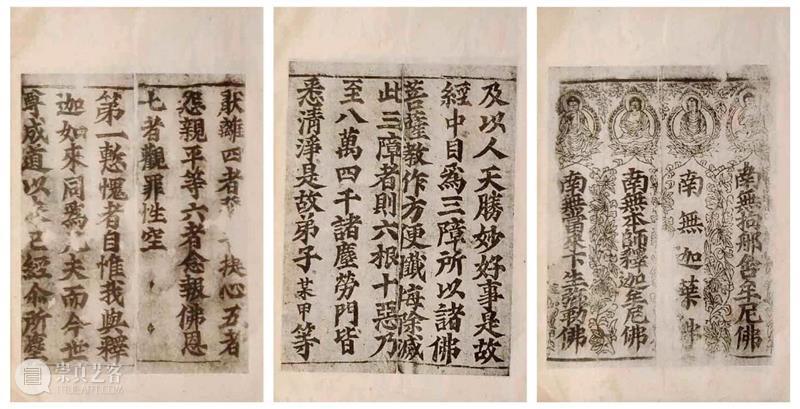 南無拘那含牟尼佛
南無迦葉佛
南無本師釋迦牟尼佛
南無當來下生弥勒佛
及以人天勝妙好事是故
經中目爲三障所以諸佛
菩薩教作方便懺悔除滅
此三障者則六根十惡乃
至八萬四千諸塵勞門皆
悉清淨是故弟子某甲等
猒離四者 心五者
怨親平等六者念報佛恩
七者觀罪性空
第一慙愧者自惟我與釋
迦如來同爲凡夫而今世
尊成道以来已經尒所塵
崇真艺客